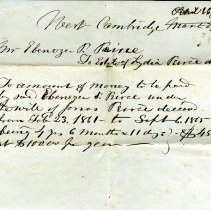 West Cambridge March
Mr Ebenezer R. Peirce
To Estate of Lydia Peirce
To amount of money to be paid
by said Ebenezer R. Peirce under
will of Jonas Peirce deceased
from Feb 23. 1851 to Sept 6. 1855
being 4 yrs 6 months 11 dys
at $100.00 year